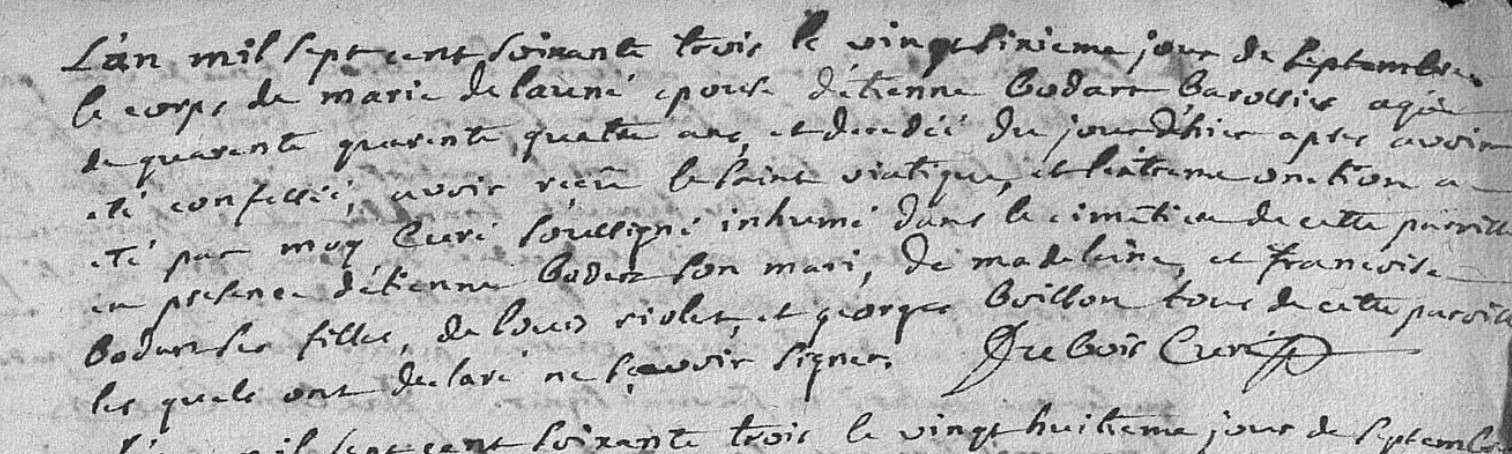 L'an mil sept cent soixante trois le vingt sixieme jour de septembre
le corps de marie delauné epouse d'etienne bodart agée
de quarente quarente quatre ans, et decedée du jour d'hier apres avoir
eté confessée, avoir reçû le saint viatique, et l'extreme onction a
eté par moy Curé soussigné inhumé dans le cimetiere de cette paroisse
en presence d'etienne bodart son mari, de madeleine, et francoise
bodart ses filles, de louis violet, et georges boisson tous de cette paroisse
les quels ont declaré ne sçavoir signer. Dubois Curé
L'an mil sept cent soixante trois le vingt huitieme jour de septembre